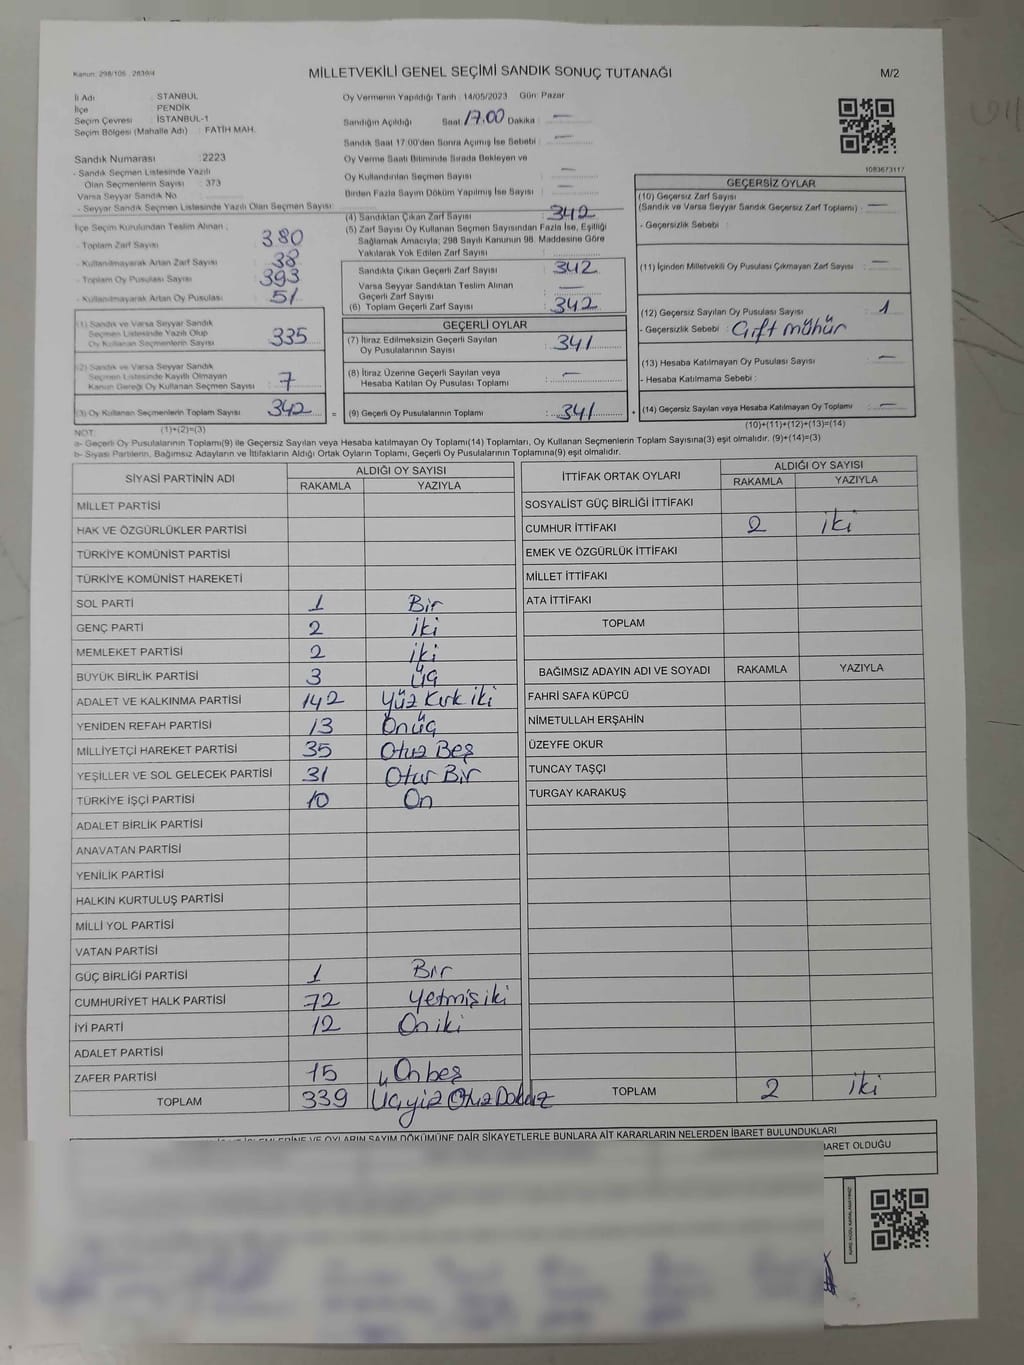 Kanun: 298/105 , 2839/4
MİLLETVEKİLİ GENEL SEÇİMİ SANDIK SONUÇ TUTANAĞI
M/2
İl Adı : İSTANBUL
İlçe : PENDİK
Seçim Çevresi : İSTANBUL-1
Seçim Bölgesi (Mahalle Adı) : FATİH MAH.
Sandık Numarası : 2223
- Sandık Seçmen Listesinde Yazılı
Olan Seçmenlerin Sayısı : 373
Varsa Seyyar Sandık No :
- Seyyar Sandık Seçmen Listesinde Yazılı Olan Seçmen Sayısı:
Oy Vermenin Yapıldığı Tarih : 14/05/2023 Gün: Pazar
Sandığın Açıldığı Saat 17.00 Dakika : —
Sandık Saat 17:00'den Sonra Açılmış İse Sebebi : —
Oy Verme Saati Bitiminde Sırada Bekleyen ve
Oy Kullandırılan Seçmen Sayısı : —
Birden Fazla Sayım Döküm Yapılmış İse Sayısı : —
1083673117
İlçe Seçim Kurulundan Teslim Alınan ;
- Toplam Zarf Sayısı : 380
- Kullanılmayarak Artan Zarf Sayısı : 38
- Toplam Oy Pusulası Sayısı : 393
- Kullanılmayarak Artan Oy Pusulası : 51
(1) Sandık ve Varsa Seyyar Sandık
Seçmen Listesinde Yazılı Olup
Oy Kullanan Seçmenlerin Sayısı : 335
(2) Sandık ve Varsa Seyyar Sandık
Seçmen Listesinde Kayıtlı Olmayan
Kanun Gereği Oy Kullanan Seçmen Sayısı : 7
(3) Oy Kullanan Seçmenlerin Toplam Sayısı : 342 =
(1)+(2)=(3)
(4) Sandıktan Çıkan Zarf Sayısı : 342
(5) Zarf Sayısı Oy Kullanan Seçmen Sayısından Fazla İse, Eşitliği
Sağlamak Amacıyla; 298 Sayılı Kanunun 98. Maddesine Göre
Yakılarak Yok Edilen Zarf Sayısı :
Sandıkta Çıkan Geçerli Zarf Sayısı : 342
Varsa Seyyar Sandıktan Teslim Alınan
Geçerli Zarf Sayısı : —
(6) Toplam Geçerli Zarf Sayısı : 342
GEÇERLİ OYLAR
(7) İtiraz Edilmeksizin Geçerli Sayılan
Oy Pusulalarının Sayısı : 341
(8) İtiraz Üzerine Geçerli Sayılan veya
Hesaba Katılan Oy Pusulası Toplamı : —
(9) Geçerli Oy Pusulalarının Toplamı : 341 +
GEÇERSİZ OYLAR
(10) Geçersiz Zarf Sayısı
(Sandık ve Varsa Seyyar Sandık Geçersiz Zarf Toplamı) : —
- Geçersizlik Sebebi :
(11) İçinden Milletvekili Oy Pusulası Çıkmayan Zarf Sayısı : —
(12) Geçersiz Sayılan Oy Pusulası Sayısı : 1
- Geçersizlik Sebebi : Çift mühür
(13) Hesaba Katılmayan Oy Pusulası Sayısı : —
- Hesaba Katılmama Sebebi :
(14) Geçersiz Sayılan veya Hesaba Katılmayan Oy Toplamı : —
(10)+(11)+(12)+(13)=(14)
NOT:
a- Geçerli Oy Pusulalarının Toplamı(9) ile Geçersiz Sayılan veya Hesaba katılmayan Oy Toplamı(14) Toplamları, Oy Kullanan Seçmenlerin Toplam Sayısına(3) eşit olmalıdır. (9)+(14)=(3)
b- Siyasi Partilerin, Bağımsız Adayların ve İttifakların Aldığı Ortak Oyların Toplamı, Geçerli Oy Pusulalarının Toplamına(9) eşit olmalıdır.
SİYASİ PARTİNİN ADI ALDIĞI OY SAYISI
RAKAMLA YAZIYLA
MİLLET PARTİSİ
HAK VE ÖZGÜRLÜKLER PARTİSİ
TÜRKİYE KOMÜNİST PARTİSİ
TÜRKİYE KOMÜNİST HAREKETİ
SOL PARTİ 1 Bir
GENÇ PARTİ 2 iki
MEMLEKET PARTİSİ 2 iki
BÜYÜK BİRLİK PARTİSİ 3 üç
ADALET VE KALKINMA PARTİSİ 142 Yüz Kırk iki
YENİDEN REFAH PARTİSİ 13 Onüç
MİLLİYETÇİ HAREKET PARTİSİ 35 Otuz Beş
YEŞİLLER VE SOL GELECEK PARTİSİ 31 Otuz Bir
TÜRKİYE İŞÇİ PARTİSİ 10 On
ADALET BİRLİK PARTİSİ
ANAVATAN PARTİSİ
YENİLİK PARTİSİ
HALKIN KURTULUŞ PARTİSİ
MİLLİ YOL PARTİSİ
VATAN PARTİSİ
GÜÇ BİRLİĞİ PARTİSİ 1 Bir
CUMHURİYET HALK PARTİSİ 72 Yetmiş iki
İYİ PARTİ 12 On iki
ADALET PARTİSİ
ZAFER PARTİSİ 15 On beş
TOPLAM 339 Üçyüz Otuz Dokuz
İTTİFAK ORTAK OYLARI ALDIĞI OY SAYISI
RAKAMLA YAZIYLA
SOSYALİST GÜÇ BİRLİĞİ İTTİFAKI
CUMHUR İTTİFAKI 2 iki
EMEK VE ÖZGÜRLÜK İTTİFAKI
MİLLET İTTİFAKI
ATA İTTİFAKI
TOPLAM
BAĞIMSIZ ADAYIN ADI VE SOYADI RAKAMLA YAZIYLA
FAHRİ SAFA KÜPCÜ
NİMETULLAH ERŞAHİN
ÜZEYFE OKUR
TUNCAY TAŞÇI
TURGAY KARAKUŞ
TOPLAM 2 iki
VE OYLARIN SAYIM DÖKÜMÜNE DAİR ŞİKAYETLERLE BUNLARA AİT KARARLARIN NELERDEN İBARET BULUNDUKLARI
İBARET OLDUĞU